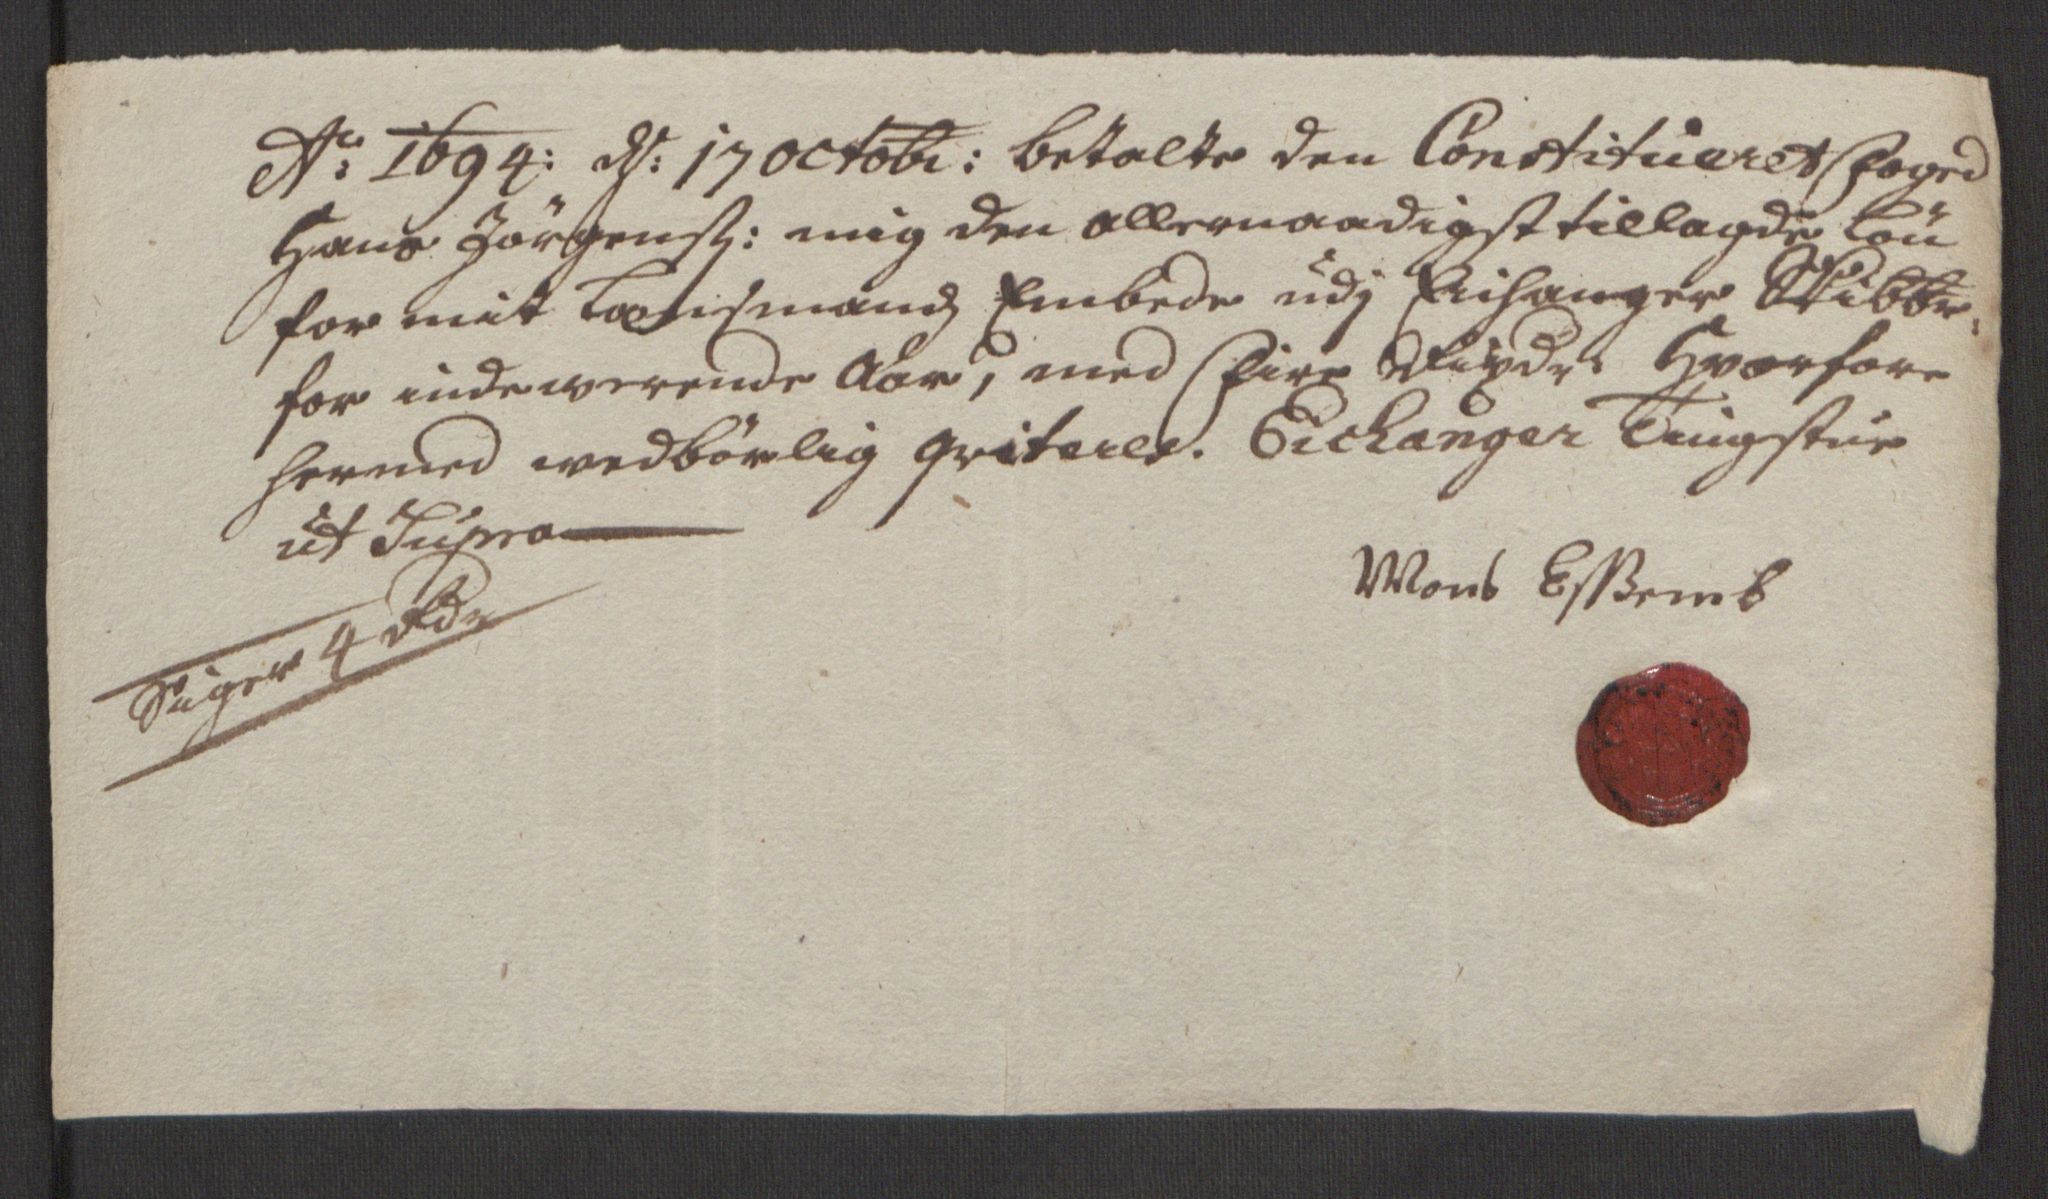 Ao: 1694: d: 17 Octobr: betalte den Constitueret Foged
Hans Jörgens: mig den allernaadigst tillagde Lön
for mit Lensmands Embede udj Eichanger Skibbr:
for indeværende Aar, med fire Rixdr: Hvorfore
hermed wedbörlig qviteres. Eichanger Tingstue
ut Supra
Mons
Siger 4 Rdr